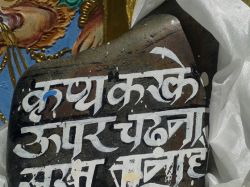 कृप्य करके
ऊपर चढना
मना है